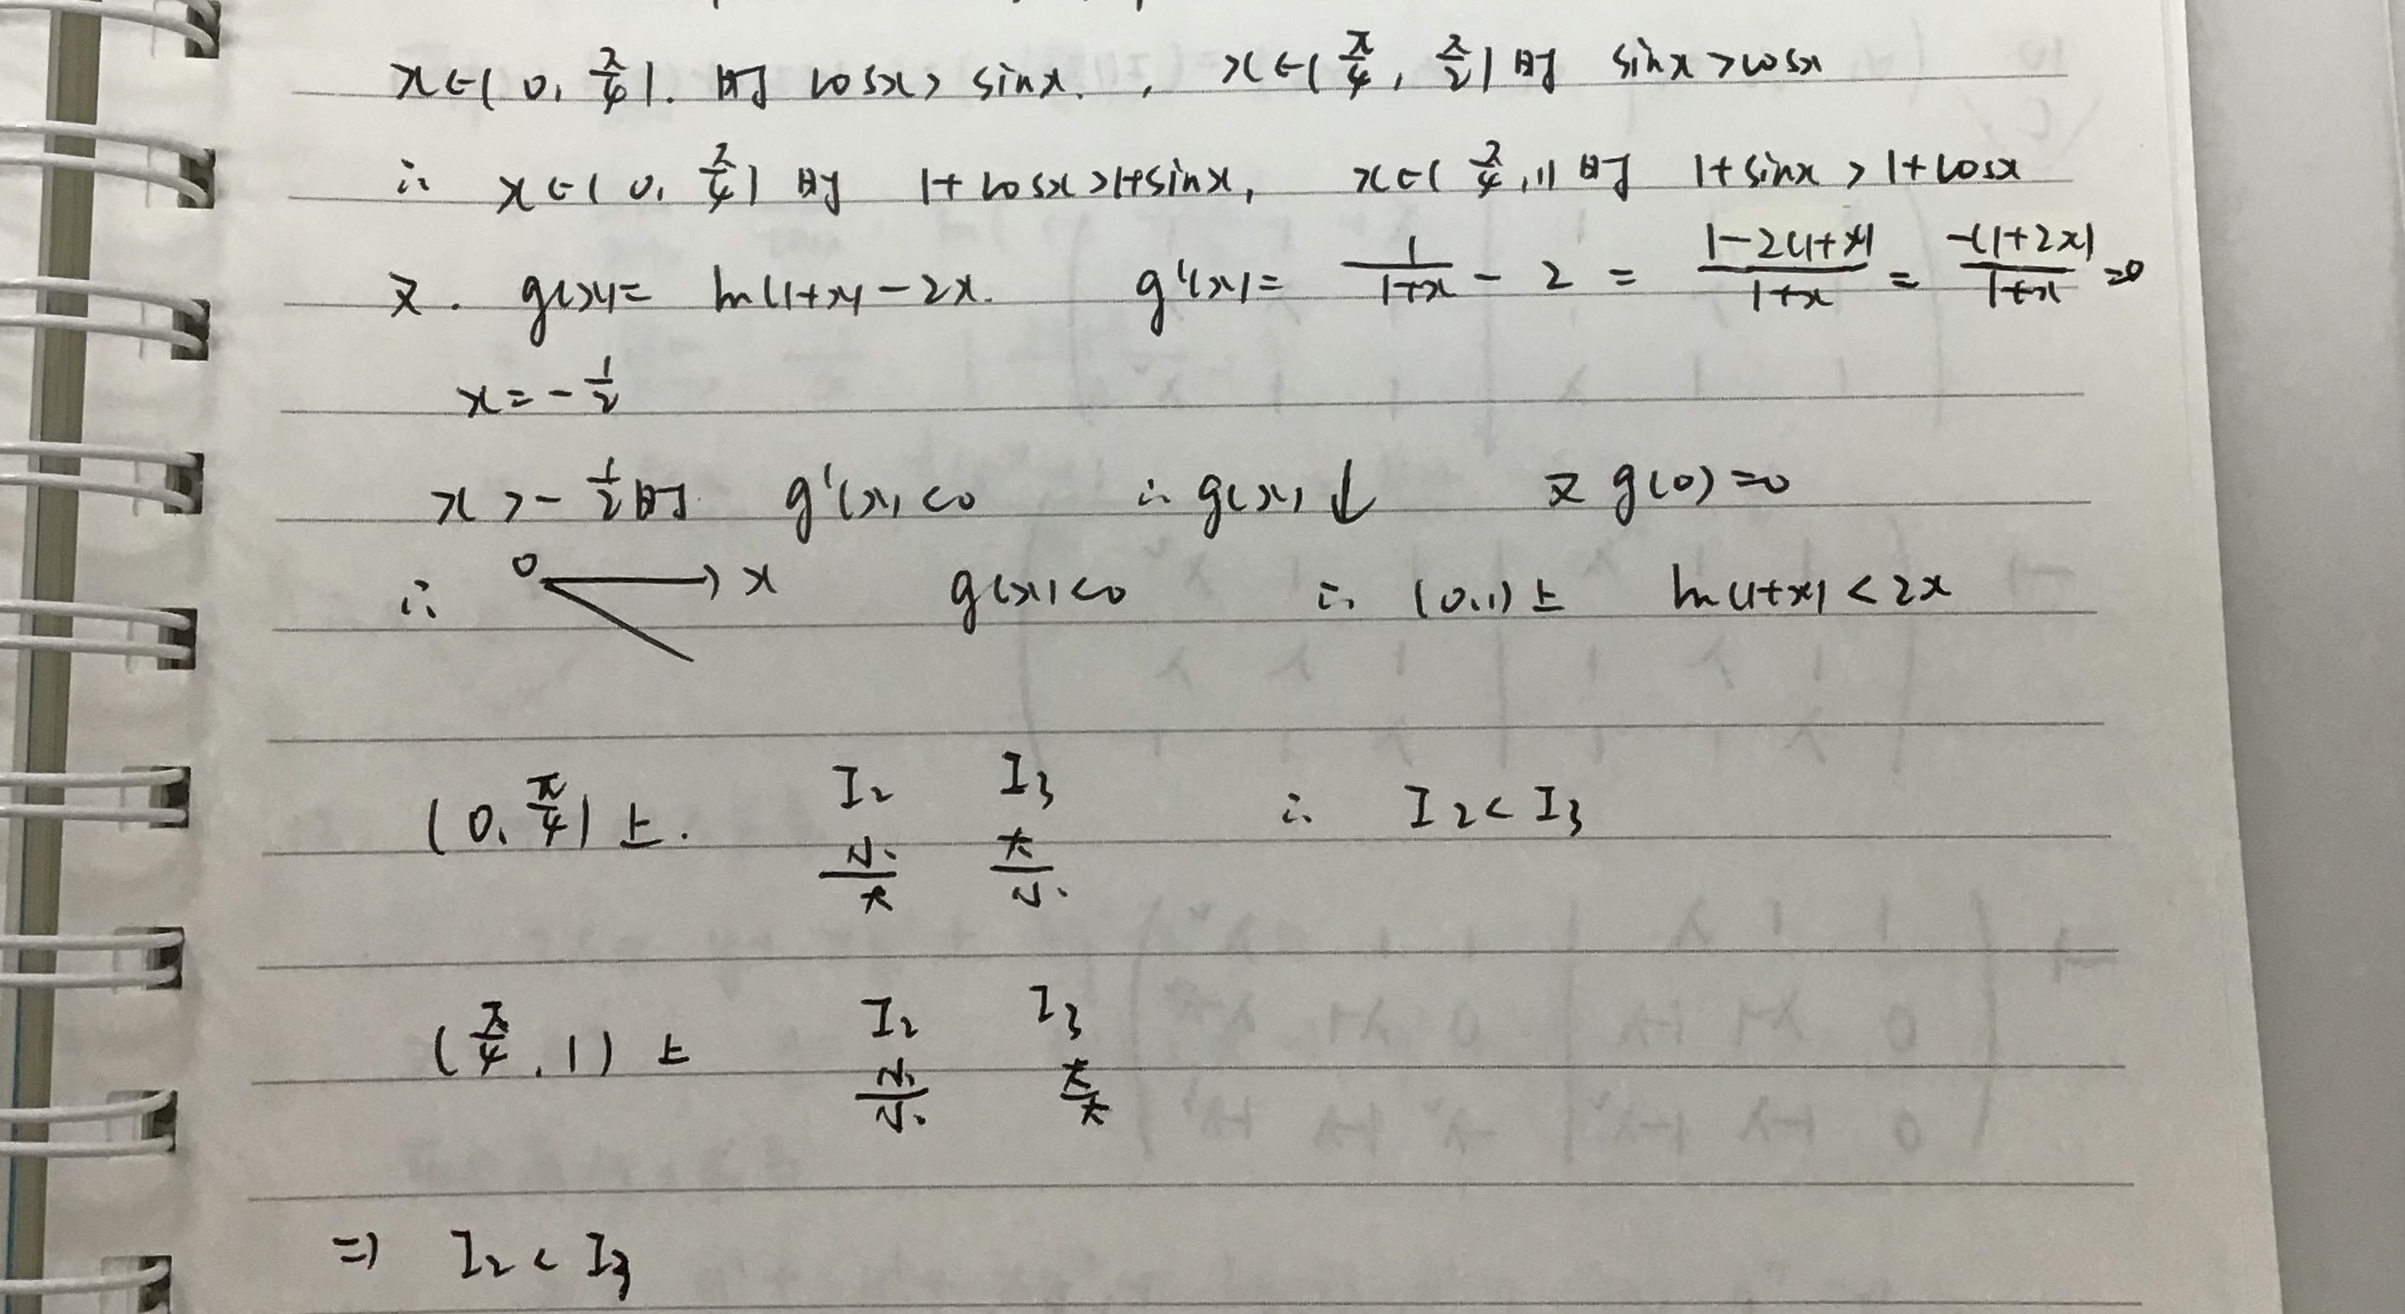 x∈(0, π/4). 时 cosx > sinx. , x∈(π/4, π/2) 时 sinx > cosx
∴ x∈(0, π/4) 时 1+cosx > 1+sinx, x∈(π/4, 1) 时 1+sinx > 1+cosx
又. g(x) = ln(1+x) - 2x. g'(x) = 1/(1+x) - 2 = (1-2(1+x))/(1+x) = -(1+2x)/(1+x) = 0
x = -1/2
x > -1/2 时 g'(x) < 0 ∴ g(x) ↓ 又 g(0) = 0
∴ 0 → x g(x) < 0 ∴ (0,1) 上 ln(1+x) < 2x
(0, π/4) 上. I₂ I₃ ∴ I₂ < I₃
小/大 大/小
(π/4, 1) 上 I₂ I₃
小/小 大/大
⇒ I₂ < I₃